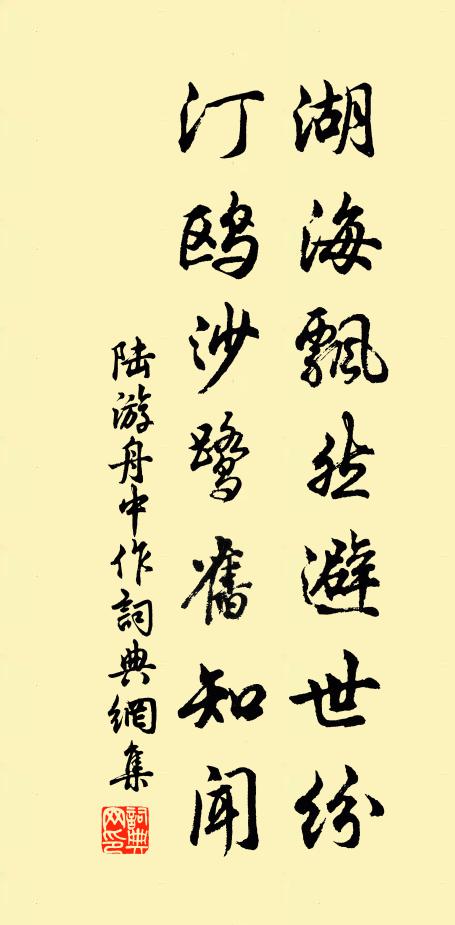 湖海飄然避世紛
汀鸥沙鹭舊知闻
陆游舟中作詞典網集
詞典网印